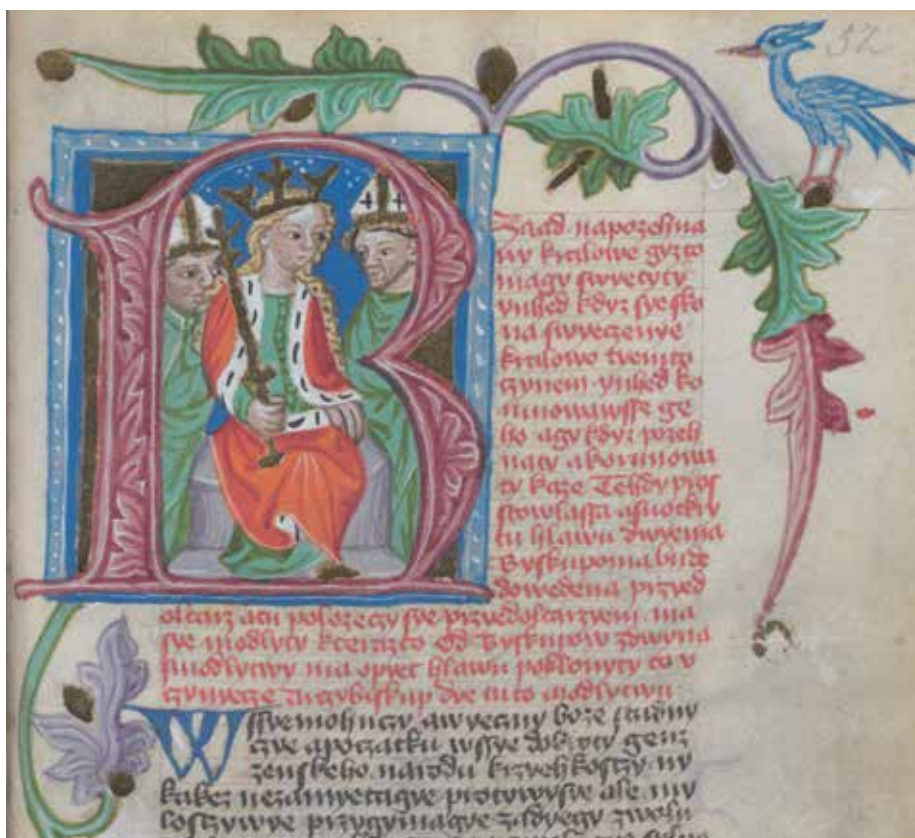 52
Zrzad napozehna
ny kralowe gyzto
magy swyetyty
ynhed kdyz syesko
na swyeczenye
kralowo tiemto
czynem ynhed ko
runowawsse ge
ho agy kdyz pozeh
naty akorunowa
ty kaze Tehdy pros
stowlassa
tu hlawu dwyema
Byskupoma bude
dowedena przyed
olcarz atu polozeczy sye przyedolcarzyem ma
sye modlyty kterzto Od Byskupow
smodlytwy ma opyet hlawu poklonyty to v
die tuto modlytwu
Wssyemohuczy awyeczny boze studny
czye apoczatku wssye dobroty genz
zenskeho narodu krzyehkosczy ny
kakez nezamyetagye protywysye ale my
losczywye przygymagye zwoly